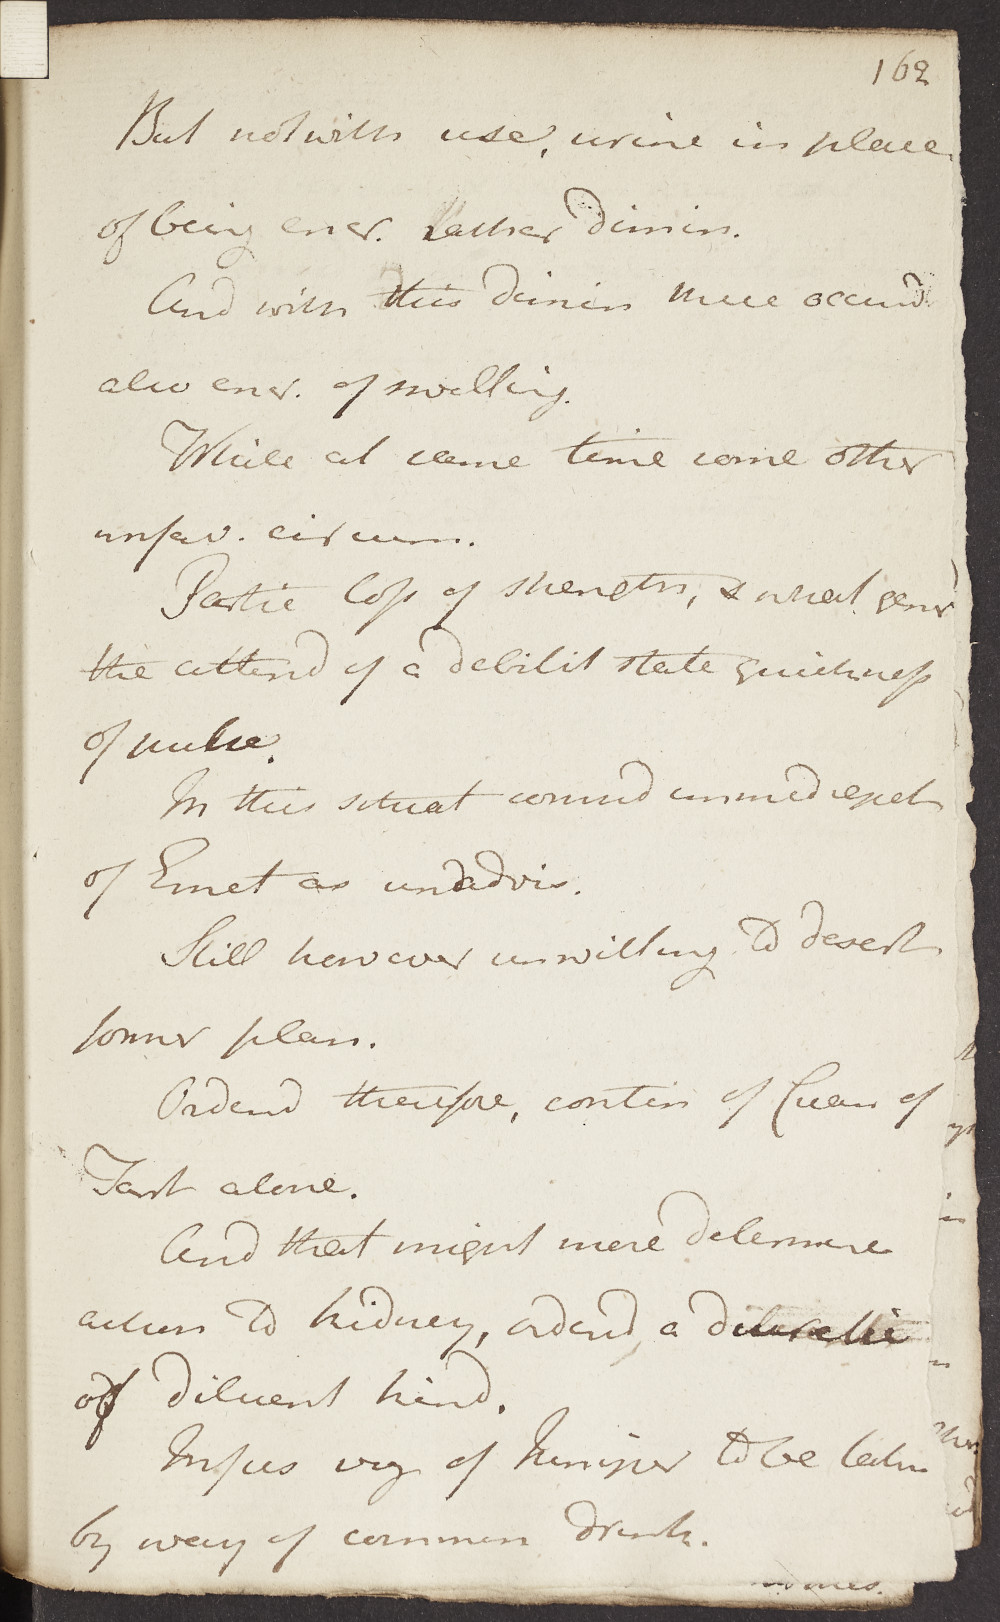 162
But notwith use, urine in place
of being encr. Rather dimin.
And with this dimin there occurrd
also encr. of swelling.
While at same time some other
unfav. circum.
Partic loss of strength, & what gener
the attend of a debilit state quickness
of pulse.
In this situat considd immed repet
of Emet as unadvis.
Still however unwilling to desert
former plan.
Orderd therefore, contin of Cream of
Tart alone.
And that might more determine
action to kidney, orderd a diuretic
of diluent kind.
Infus of Juniper to be taken
by way of common drink.